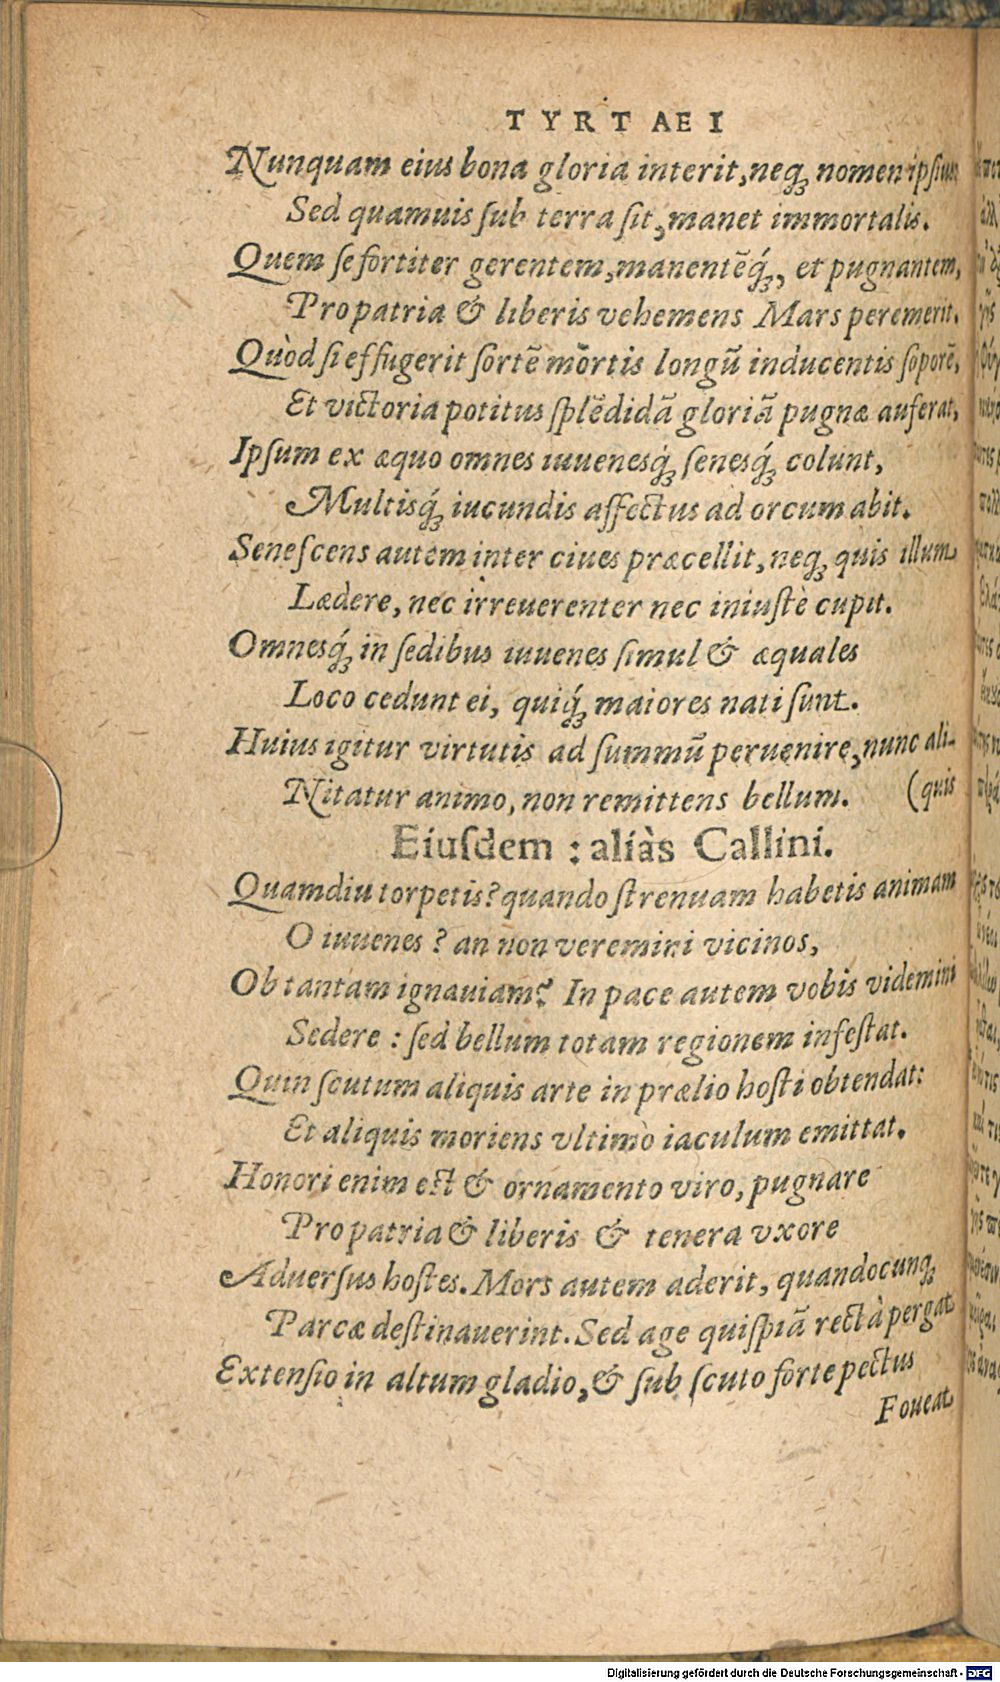 TYRTAEI
Nunquam eius bona gloria interit, neq; nomen ipsius:
Sed quamuis sub terra sit, manet immortalis.
Quem se fortiter gerentem, manentẽq́;, et pugnantem,
Pro patria & liberis vehemens Mars peremerit.
Quòd si effugerit sortẽ mortis longũ inducentis soporẽ,
Et victoria potitus splẽdidã gloriã pugnæ auferat,
Ipsum ex æquo omnes iuuenesq́; senesq́; colunt,
Multisq́; iucundis affectus ad orcum abit.
Senescens autem inter ciues præcellit, neq; quis illum
Lædere, nec irreuerenter nec iniustè cupit.
Omnesq́; in sedibus iuuenes simul & æquales
Loco cedunt ei, quiq́; maiores nati sunt.
Huius igitur virtutis ad summũ peruenire, nunc ali-
Nitatur animo, non remittens bellum. (quis
Eiusdem : aliàs Callini.
Quamdiu torpetis? quando strenuam habetis animam
O iuuenes ? an non veremini vicinos,
Ob tantam ignauiam? In pace autem vobis videmini
Sedere : sed bellum totam regionem infestat.
Quin scutum aliquis arte in prælio hosti obtendat:
Et aliquis moriens vltimò iaculum emittat.
Honori enim est & ornamento viro, pugnare
Pro patria & liberis & tenera vxore
Aduersus hostes. Mors autem aderit, quandocunq;
Parcæ destinauerint. Sed age quispiã rectà pergat
Extensio in altum gladio, & sub scuto forte pectus
Foueat
Digitalisierung gefördert durch die Deutsche Forschungsgemeinschaft - DFG